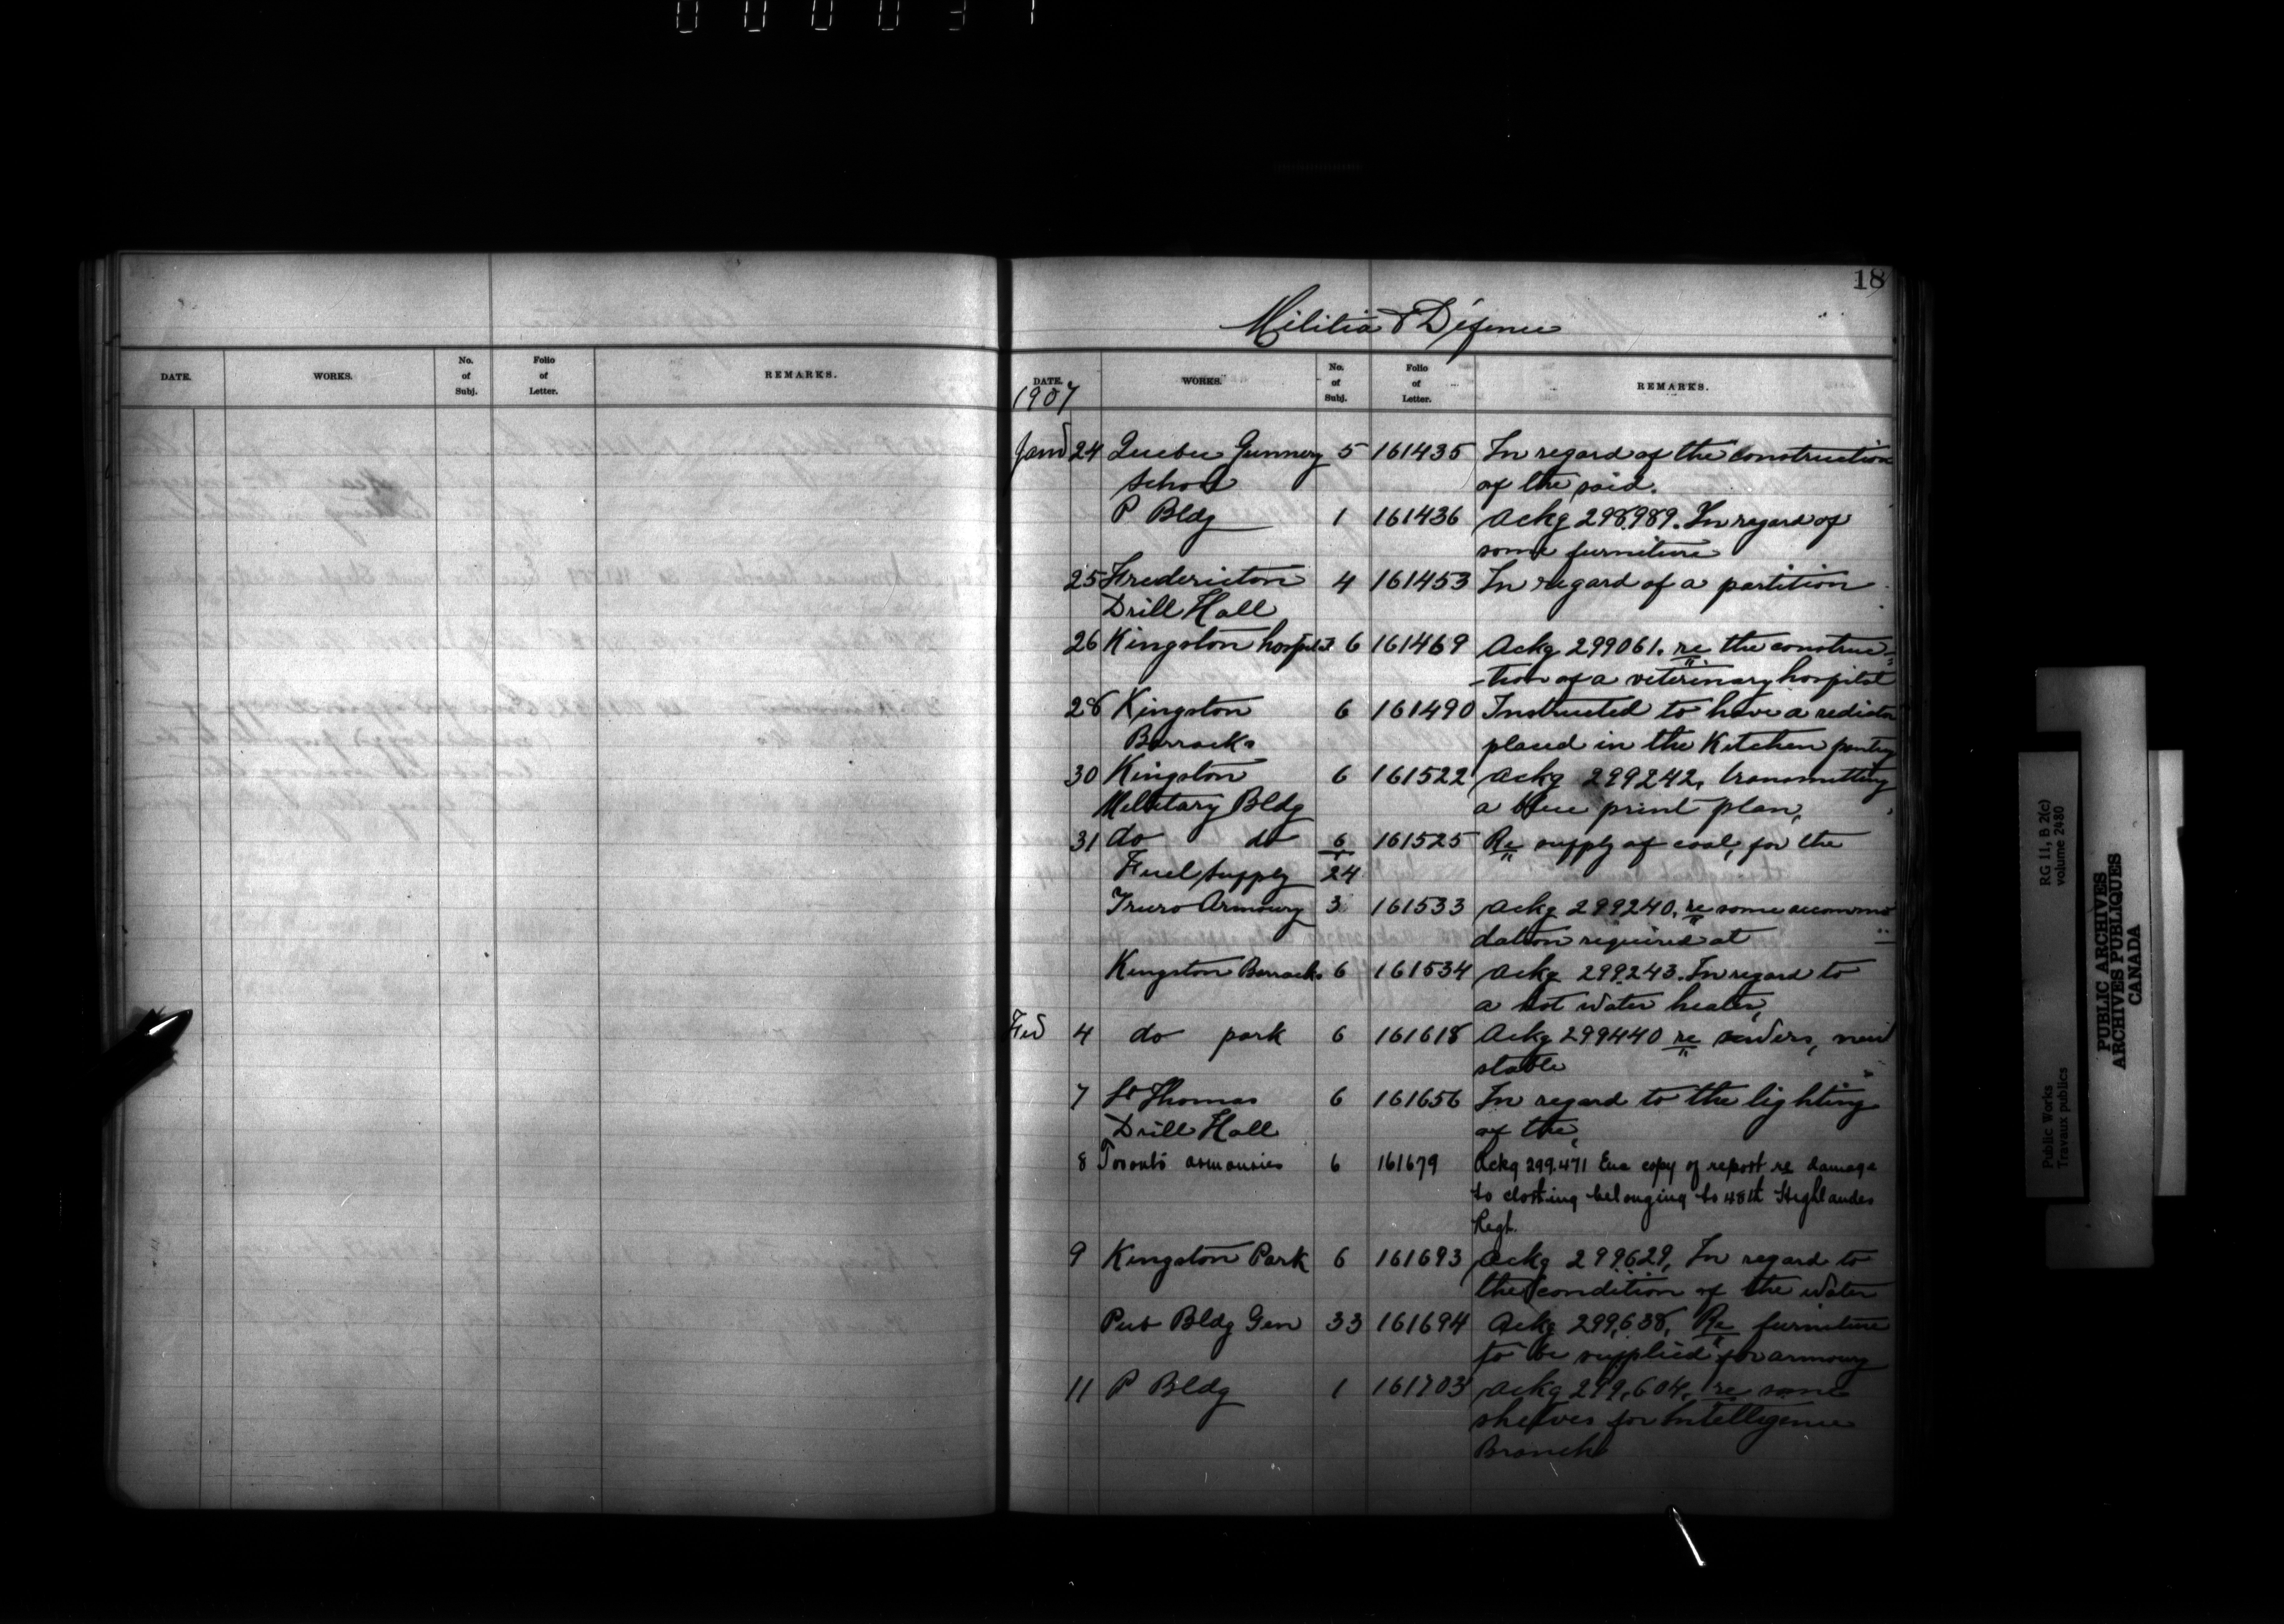 000031
18
Militia & Defence
DATE. WORKS. No. of Subj. Folio of Letter. REMARKS.
DATE. WORKS. No. of Subj. Folio of Letter. REMARKS.
1907
Jan 24 Quebec Gunnery 5 161435 In regard of the construction
School of the said.
P Bldg 1 161436 Ackg 298989. In regard of
some furniture
25 Fredericton 4 161453 In regard of a partition
Drill Hall
26 Kingston hospital 6 161469 Ackg 299061. re the construc-
-tion of a veterinary hospital
28 Kingston 6 161490 Instructed to have a rediator
Barracks placed in the Kitchen pantry
30 Kingston 6 161522 Ackg 299242, transmitting
Military Bldg a blue print plan,
31 do do 6 161525 Re supply of coal, for the
Fuel Supply 24
Truro Armoury 3 161533 Ackg 299240, re some accommo
dation required at
Kingston Barracks 6 161534 Ackg 299243. In regard to
a hot water heater,
Feb 4 do park 6 161618 Ackg 299440 re tenders, new
stable
7 St Thomas 6 161656 In regard to the lighting
Drill Hall of the,
8 Toronto armouries 6 161679 Ackg 299.471 Enc copy of report re damage
to clothing belonging to 48th Highlandes
Regt.
9 Kingston Park 6 161693 Ackg 299629, In regard to
the condition of the water
Pub Bldg Gen 33 161694 Ackg 299,638, Re furniture
to be supplied for armoury
11 P Bldg 1 161703 Ackg 299,604, re some
shelves for Intelligence
Branch
Public Works
Travaux publics
RG 11, B 2(c)
volume 2480
PUBLIC ARCHIVES
ARCHIVES PUBLIQUES
CANADA